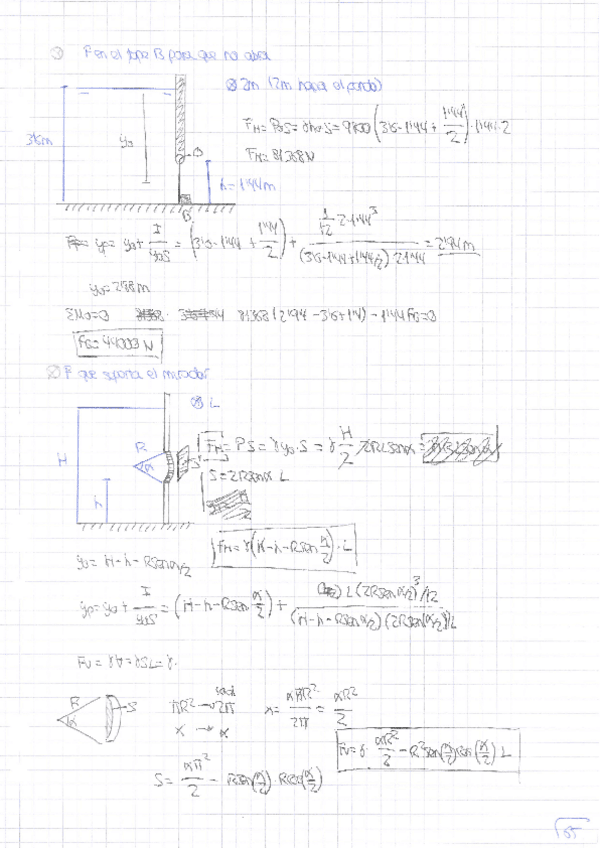 ① F en el tope B para que no abra
⊗ 2m (2m hacia el fondo)
F_H = P_G S = γ h_G · S = 9800 (3'6 - 1'44 + 1'44/2) · 1'44 · 2
3'6m
y_G
F_H = 81368 N
O
h = 1'44m
B
y_P = y_G + I/(y_G S) = (3'6 - 1'44 + 1'44/2) + (1/12 · 2 · 1'44³)/((3'6 - 1'44 + 1'44/2) · 2 · 1'44) = 2'94 m
y_G = 2'88 m
ΣM_O = 0 81368 (2'94 - 3'6 + 1'4) - 1'44 F_B = 0
F_B = 44003 N
② F que soporta el mirador
⊗ L
H
R
α
S
h
F_H = PS = γ y_G · S = γ H/2 · 2RL sen α =
S = 2R sen α L
F_H = γ (H - h - R sen α/2) · L
y_G = H - h - R sen α/2
y_P = y_G + I/(y_G S) = (H - h - R sen α/2) + (L (2R sen α/2)³/12)/((H - h - R sen α/2)(2R sen α/2) L)
F_V = γ V = γ S L = γ ·
R
α
S
πR² → 2π rad
x → α
x = απR²/2π = αR²/2
F_V = γ · αR²/2 - R² sen(α/2) cos(α/2) L
S = αR²/2 - R sen(α/2) · R cos(α/2)